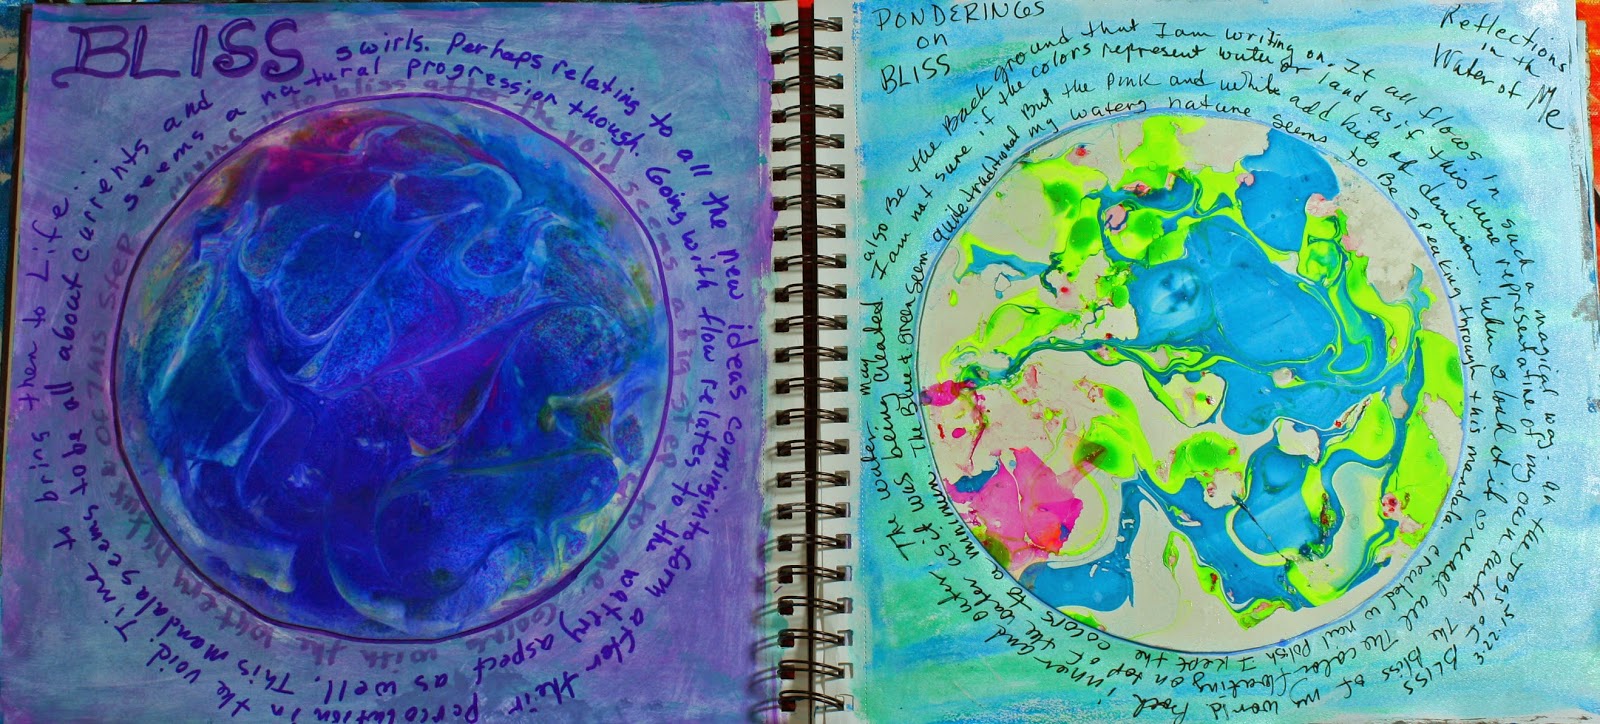 BLISS
Moving in to bliss after the void seems a big step to me. Going with the watery nature of this step
seems a natural progression though. Going with flow relates to the watery aspect as well. This mandala seems to be all about currents and
swirls. Perhaps relating to all the new ideas coming into form after their percolation in the void. Time to bring them to Life...
PONDERINGS
on
BLISS
Reflections
in th
Water of Me
my watery nature seems to Be speaking through this mandala created w nail Polish I kept the colors to a minimum. The Blue & green seem quite traditional
But the pink and white add bits of demension. When I look at it overall all The color floating on top of the water as it was being created
I am not sure if the colors represent water or land as if this were representative of my own earth. The Bliss of my world. inner and outer The water may
also Be the Back ground that I am writing on. It all flows in such a magical way in the Joys BLISS